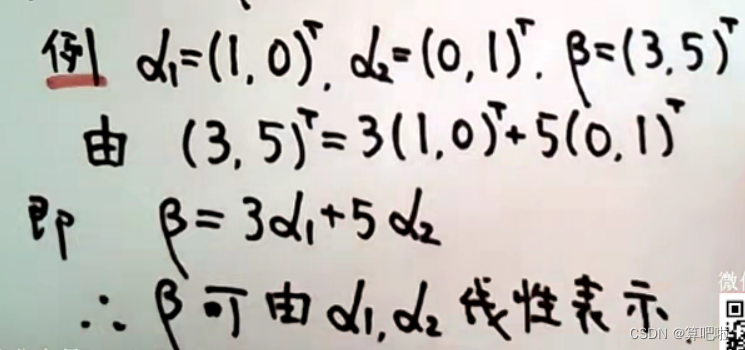 例 α₁=(1,0)ᵀ, α₂=(0,1)ᵀ. β=(3,5)ᵀ
由 (3,5)ᵀ=3(1,0)ᵀ+5(0,1)ᵀ
即 β=3α₁+5α₂
∴ β可由α₁,α₂线性表示
CSDN @算吧啦